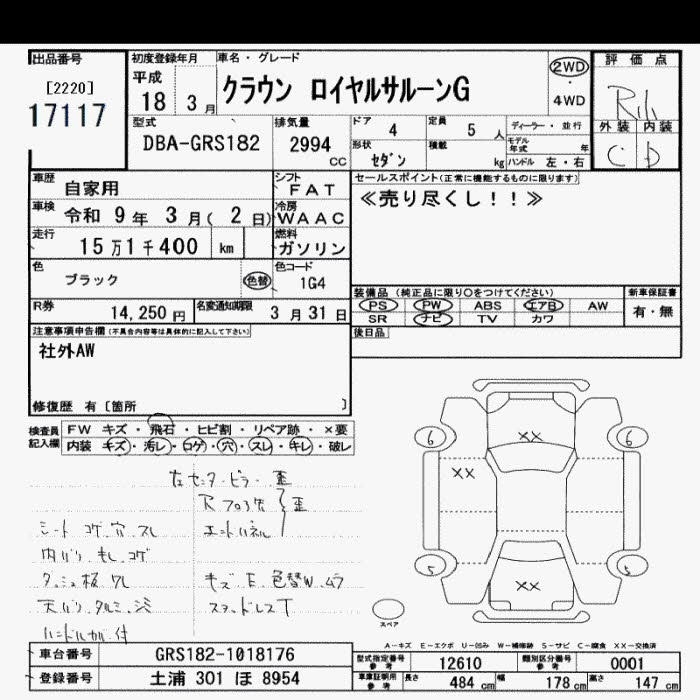 出品番号
[2220]
17117
初度登録年月
平成
18 3月
車名・グレード
クラウン ロイヤルサルーンG
2WD
4WD
評価点
外装 内装
C D
型式
DBA-GRS182
排気量
2994
CC
ドア
4
定員
5 人
ディーラー・並行
形状
セダン
積載
kg
モデル年式 年
ハンドル 左・右
車歴
自家用
シフト
FAT
セールスポイント(正常に機能するものに限ります)
≪売り尽くし!!≫
車検
令和 9年 3月( 2日)
冷房
WAAC
走行
15万1千400 km
燃料
ガソリン
色
ブラック
色替
色コード
1G4
装備品 (純正品に限り○をつけてください)
新車保証書
PS PW ABS エアB AW
SR ナビ TV カワ
有・無
R券
14,250 円
名変通知期限
3月31日
後日品
注意事項申告欄(不具合内容等は具体的に記入して下さい)
社外AW
修復歴 有〔箇所 〕
検査員記入欄
FW キズ・飛石・ヒビ割・リペア跡・×要
内装 キズ・汚レ・コゲ・穴・スレ・キレ・破レ
左センターピラー歪
エンドパネル
歪
シート コゲ 穴 スレ
内バリ キレ コゲ
ダッシュ板 ワレ
天バリ タルミ シミ
キズ E 色替W ムラ
6 6
XX
XX
5 5
XX
スペア
A-キズ E-エクボ U-凹み W-補修跡 S-サビ C-腐食 XX-交換済
車台番号
GRS182-1018176
登録番号
土浦 301 ほ 8954
型式指定番号
参考
12610
類別区分番号
参考
0001
車庫証明用
参考
長さ 484 cm
幅 178 cm
高さ 147 cm